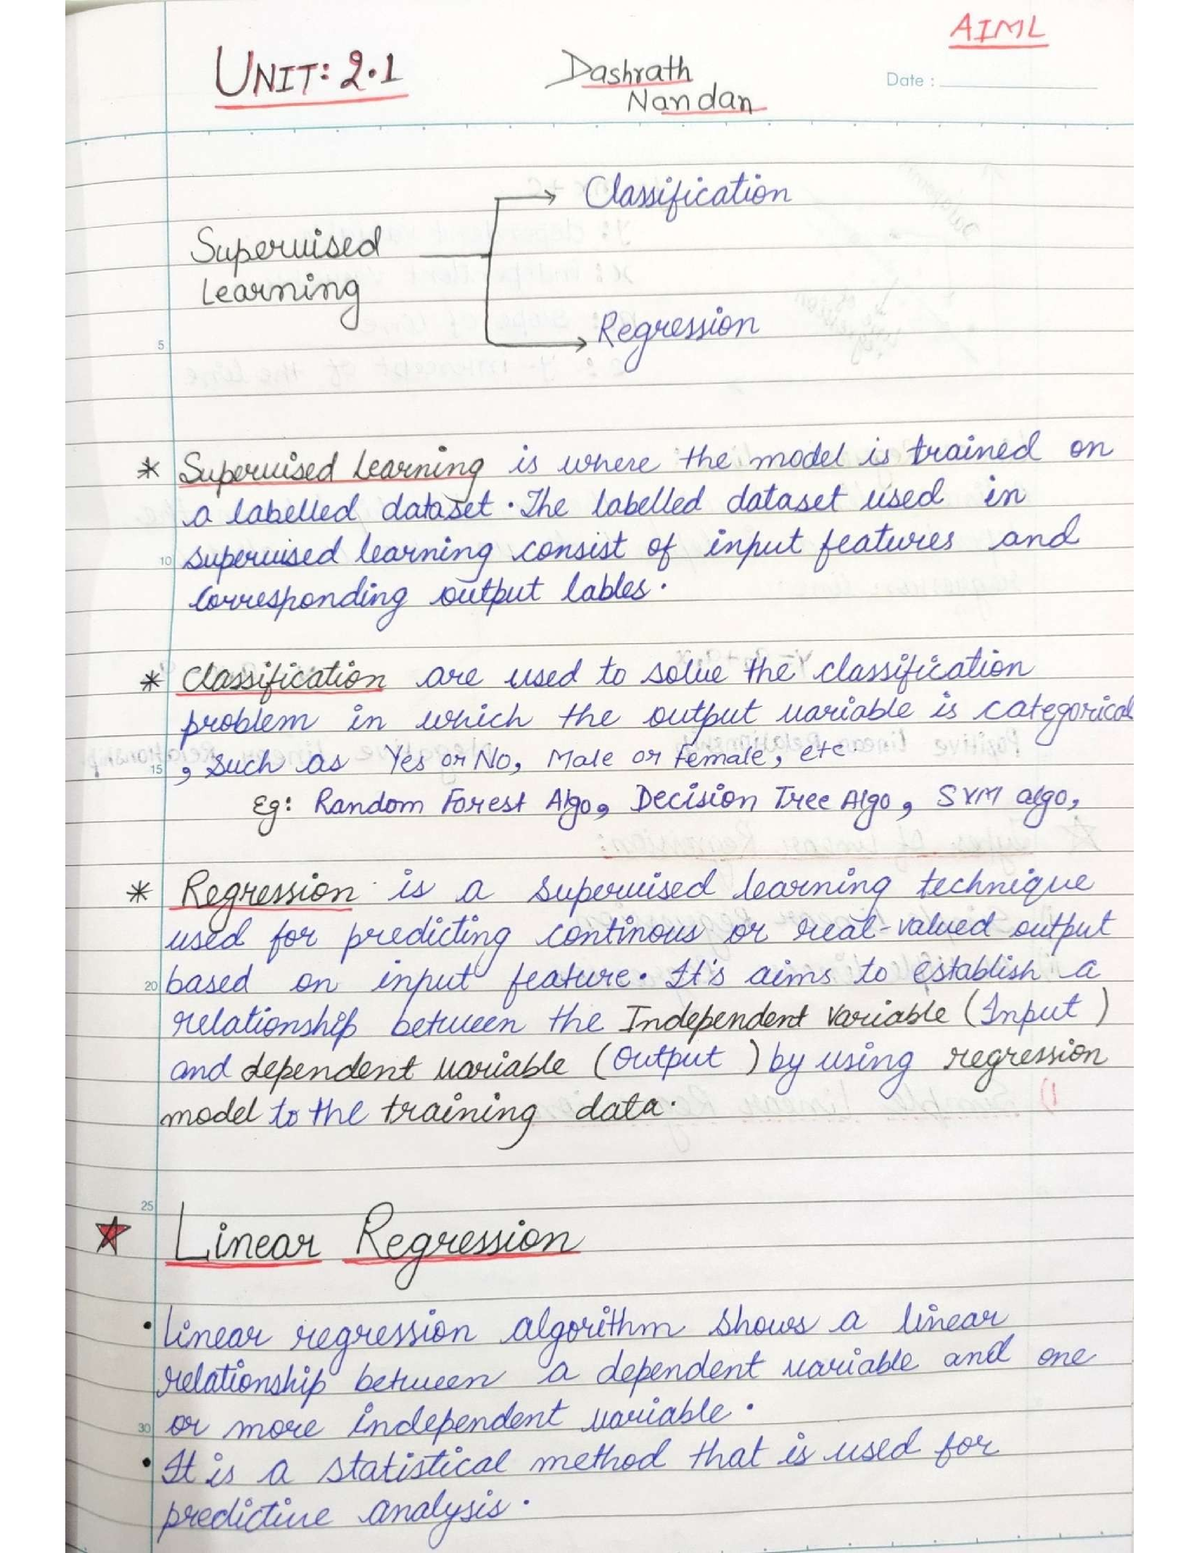 AIML
UNIT: 2.1
Dashrath
Nandan
Date :
Classification
Supervised
Learning
Regression
5
* Supervised Learning is where the model is trained on
a labelled dataset. The labelled dataset used in
10 supervised learning consist of input features and
corresponding output lables.
* Classification are used to solve the classification
problem in which the output variable is categorical
15 , such as Yes or No, Male or female, etc
Eg: Random Forest Algo, Decision Tree Algo, SVM algo,
* Regression is a supervised learning technique
used for predicting continous or real-valued output
20 based on input feature. It's aims to establish a
relationship between the Independent variable (Input )
and dependent variable (Output ) by using regression
model to the training data.
25
★ Linear Regression
• linear regression algorithm shows a linear
relationship between a dependent variable and one
30 or more independent variable.
• It is a statistical method that is used for
predictive analysis.